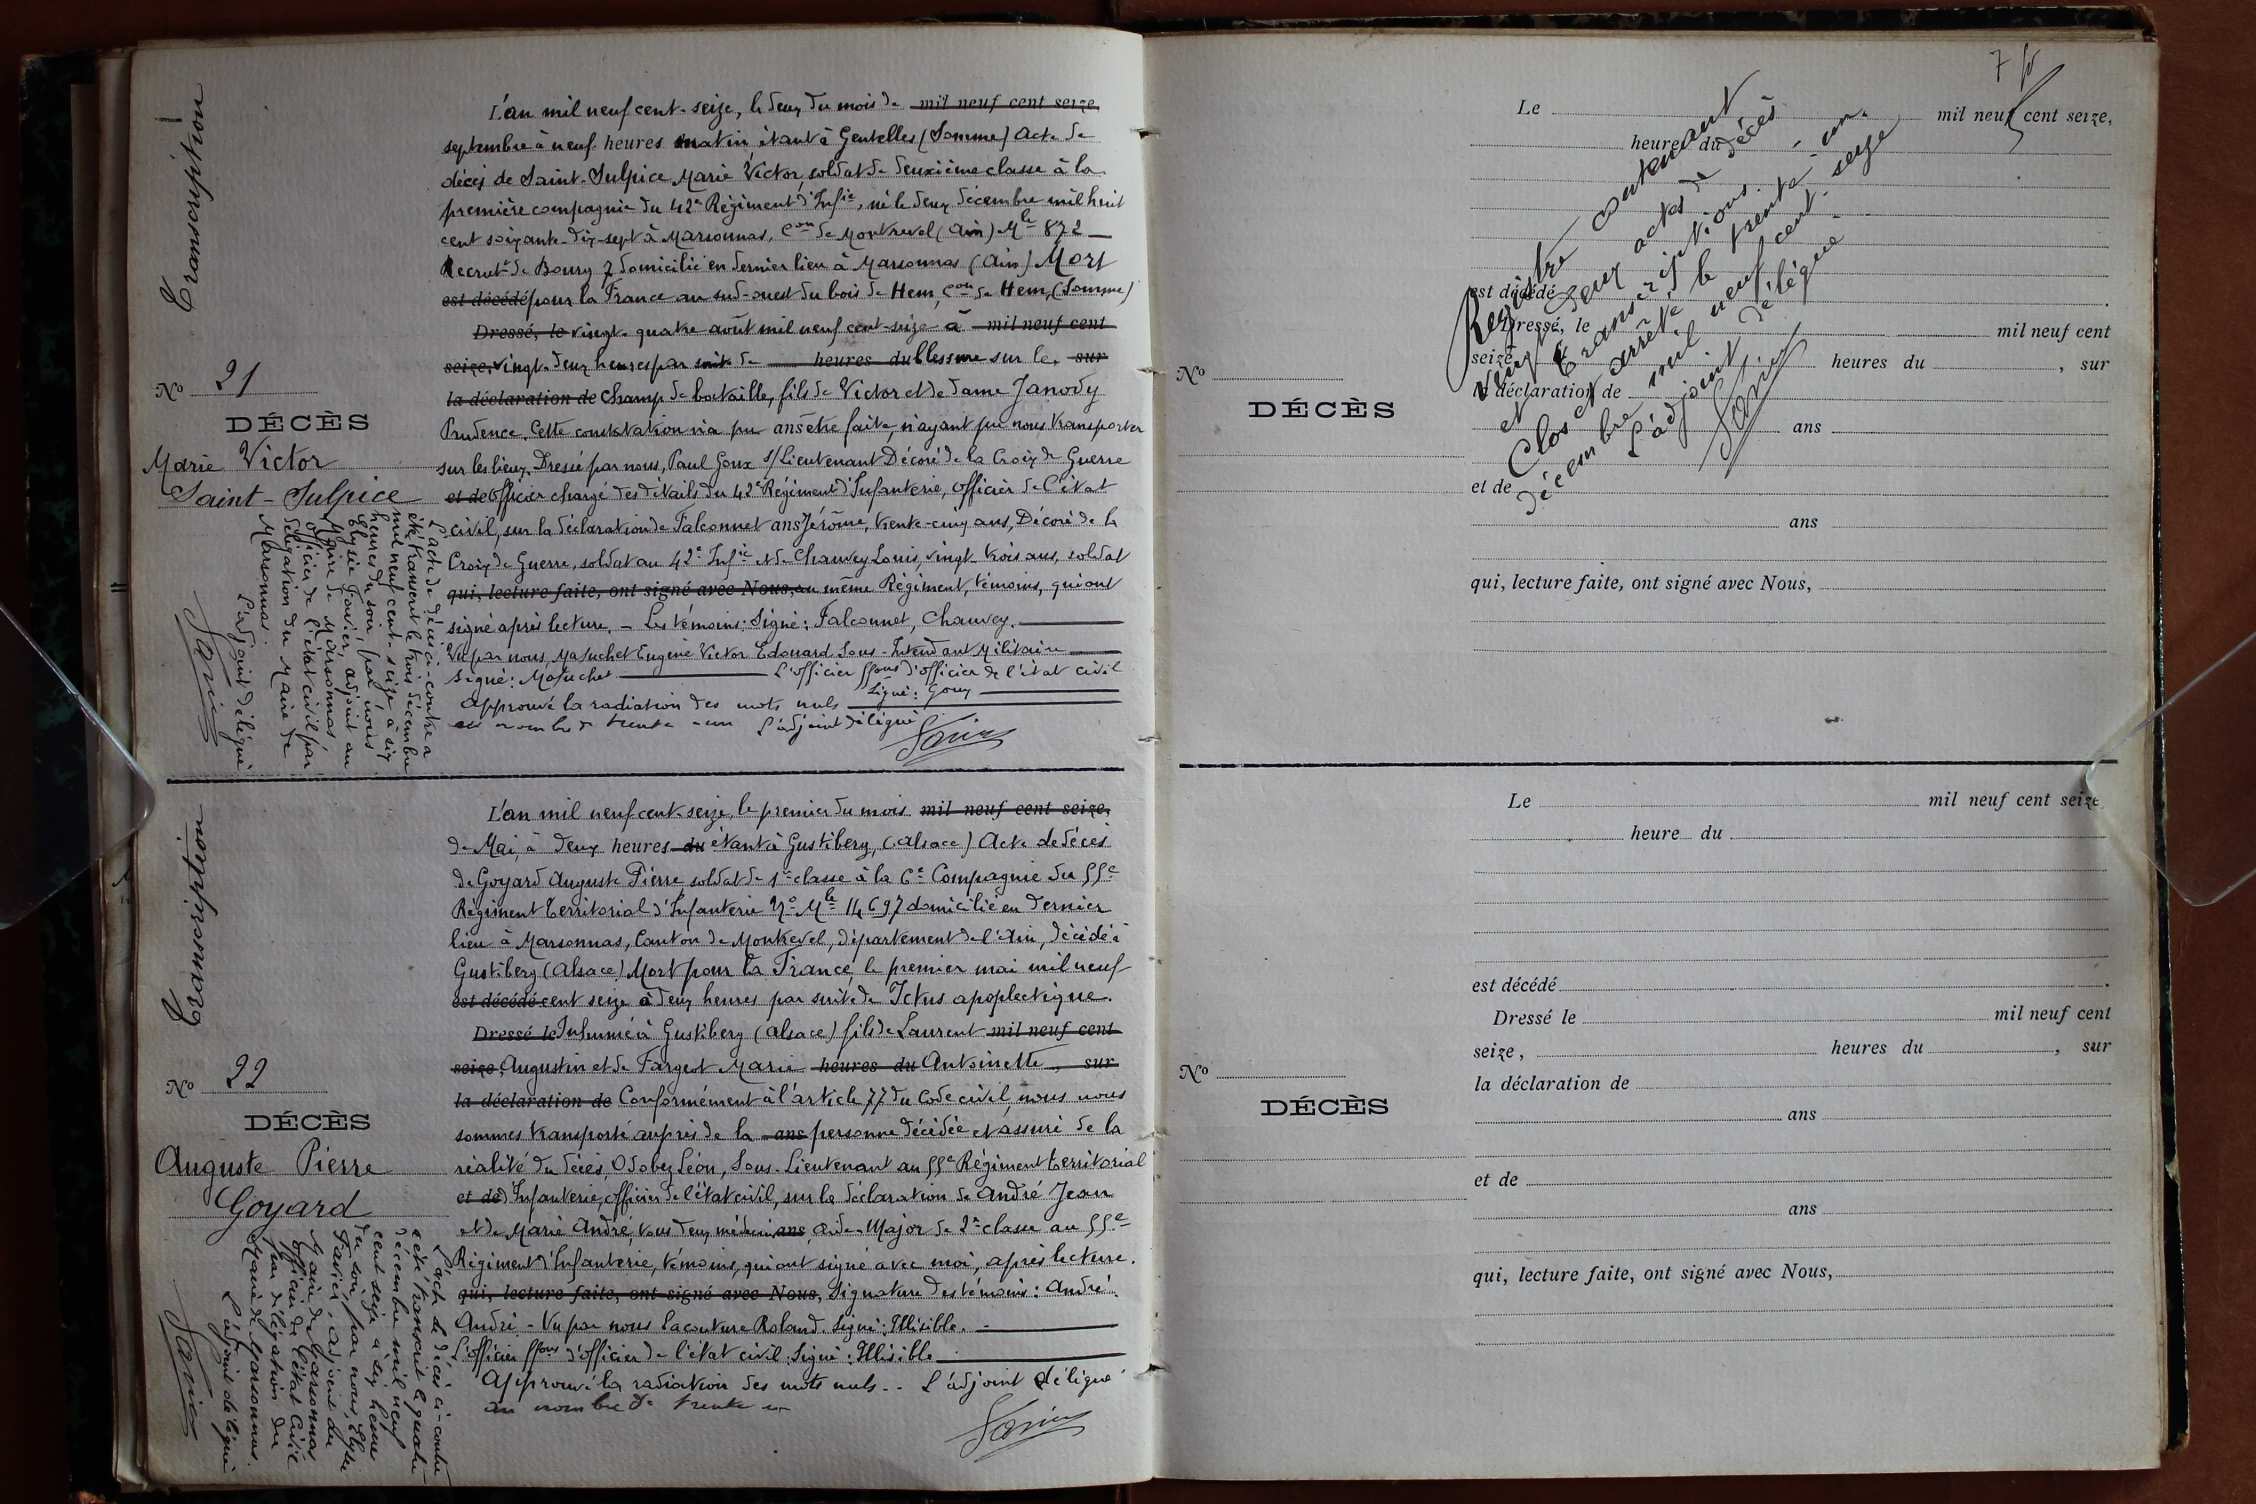 Transcription
N° 21
DÉCÈS
Marie Victor
Saint-Sulpice
L'acte de décès ci-contre a
été transcrit le trois décembre
mil neuf cent-seize à six
heures du soir, par nous
Elysée Favier, adjoint au
Maire de Marsonnas,
officier de l'état civil par
délégation du Maire de
Marsonnas.
L'adjoint délégué
Favier
L'an mil neuf cent-seize, le deux du mois de mil neuf cent seize,
septembre à neuf heures matin étant à Gentelles (Somme) Acte de
décès de Saint-Sulpice Marie Victor, soldat de deuxième classe à la
première compagnie du 42e Régiment d'Infie, né le deux décembre mil huit
cent soixante-dix-sept à Marsonnas, Con de Montrevel (Ain) Mle 872 —
Recrutt de Bourg, domicilié en dernier lieu à Marsonnas (Ain) Mort
est décédé pour la France au sud-ouest du bois de Hem, Con de Hem, (Somme)
Dressé, le vingt-quatre août mil neuf cent-seize à mil neuf cent
seize, vingt-deux heures par suite de heures du blessure sur le sur
la déclaration de champ de bataille, fils de Victor et de dame Janody
Prudence. Cette constatation n'a pu ans être faite, n'ayant pu nous transporter
sur les lieux. Dressé par nous, Paul Goux s/Lieutenant Décoré de la Croix de Guerre
et de Officier chargé des détails du 42e Régiment d'Infanterie, officier de l'état
civil, sur la déclaration de Falconnet ans Jérôme, trente-cinq ans, Décoré de la
Croix de Guerre, soldat au 42e Infie et de Chauvey Louis, vingt-trois ans, soldat
qui, lecture faite, ont signé avec Nous, au même Régiment, témoins, qui ont
signé après lecture. — Les témoins: Signé: Falconnet, Chauvey.
Vu par nous, Masuchet Eugène Victor Edouard Sous-Intendant Militaire
Signé: Masuchet — L'officier ffons d'officier de l'état civil
Signé: Goux
Approuvé la radiation des mots nuls
au nombre de trente-un L'adjoint délégué
Favier
Transcription
N° 22
DÉCÈS
Auguste Pierre
Goyard
L'acte de décès ci-contre
a été transcrit le quatre
décembre mil neuf
cent seize à six heures
du soir, par nous, Elysée
Favier, adjoint au
Maire de Marsonnas
officier de l'état civil
par délégation du
Maire de Marsonnas.
L'adjoint délégué
Favier
L'an mil neuf cent-seize, le premier du mois mil neuf cent seize,
de Mai, à deux heures du étant à Gustiberg, (Alsace) Acte de décès
de Goyard Auguste Pierre soldat de 1e classe à la 6e Compagnie du 55e
Régiment Territorial d'Infanterie No Mle 14697 domicilié en dernier
lieu à Marsonnas, Canton de Montrevel, département de l'Ain, décédé à
Gustiberg (Alsace) Mort pour la France, le premier mai mil neuf
est décédé cent seize à deux heures par suite de Ictus apoplectique.
Dressé le Inhumé à Gustiberg (Alsace) fils de Laurent mil neuf cent
seize, Augustin et de Farget Marie heures du Antoinette, sur
la déclaration de Conformément à l'article 77 du Code civil, nous nous
sommes transporté auprès de la ans personne décédée et assuré de la
réalité du décès, Odobez Léon, Sous-Lieutenant au 55e Régiment Territorial
et de d'Infanterie, officier de l'état civil, sur la déclaration de André Jean
et de Marie André, tous deux médecin ans, aide-Major de 2e classe au 55e
Régiment d'Infanterie, témoins, qui ont signé avec moi, après lecture.
qui, lecture faite, ont signé avec Nous, Signature des témoins: André.
André - Vu par nous Lacouture Roland. Signé: Illisible.
L'officier ffons d'officier de l'état civil. Signé: Illisible
Approuvé la radiation des mots nuls.. L'adjoint délégué
au nombre de trente un
Favier
7
Le mil neuf cent seize,
heure du
est décédé
Dressé, le mil neuf cent
seize, heures du , sur
la déclaration de
ans
et de
ans
qui, lecture faite, ont signé avec Nous,
N°
DÉCÈS
Registre contenant
vingt deux actes de décès
et transcriptions.
Clos et arrêté, le trente-un
décembre mil neuf cent-seize
L'adjoint délégué.
Favier
Le mil neuf cent seize
heure du
est décédé
Dressé le mil neuf cent
seize, heures du , sur
la déclaration de
ans
et de
ans
qui, lecture faite, ont signé avec Nous,
N°
DÉCÈS